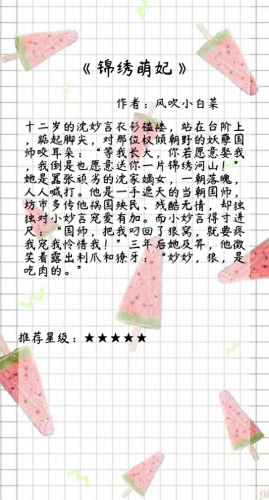 《锦绣萌妃》
作者：风吹小白菜
十二岁的沈妙言衣衫褴褛，站在台阶上
，踮起脚尖，对那位权倾朝野的妖孽国
师咬耳朵：“等我长大，你若愿意娶我
，我倒是也愿意送你一片锦绣河山！”
她是嚣张顽劣的沈家嫡女，一朝落魄，
人人喊打。他是一手遮天的当朝国师，
坊市多传他祸国殃民、残酷无情，却独
独对小妙言宠爱有加。而小妙言得寸进
尺：“国师，把我叼回了狼窝，就要疼
我宠我怜惜我！”三年后她及笄，他微
笑着露出利爪和獠牙：“妙妙，狼，是
吃肉的。”
推荐星级：★★★★★